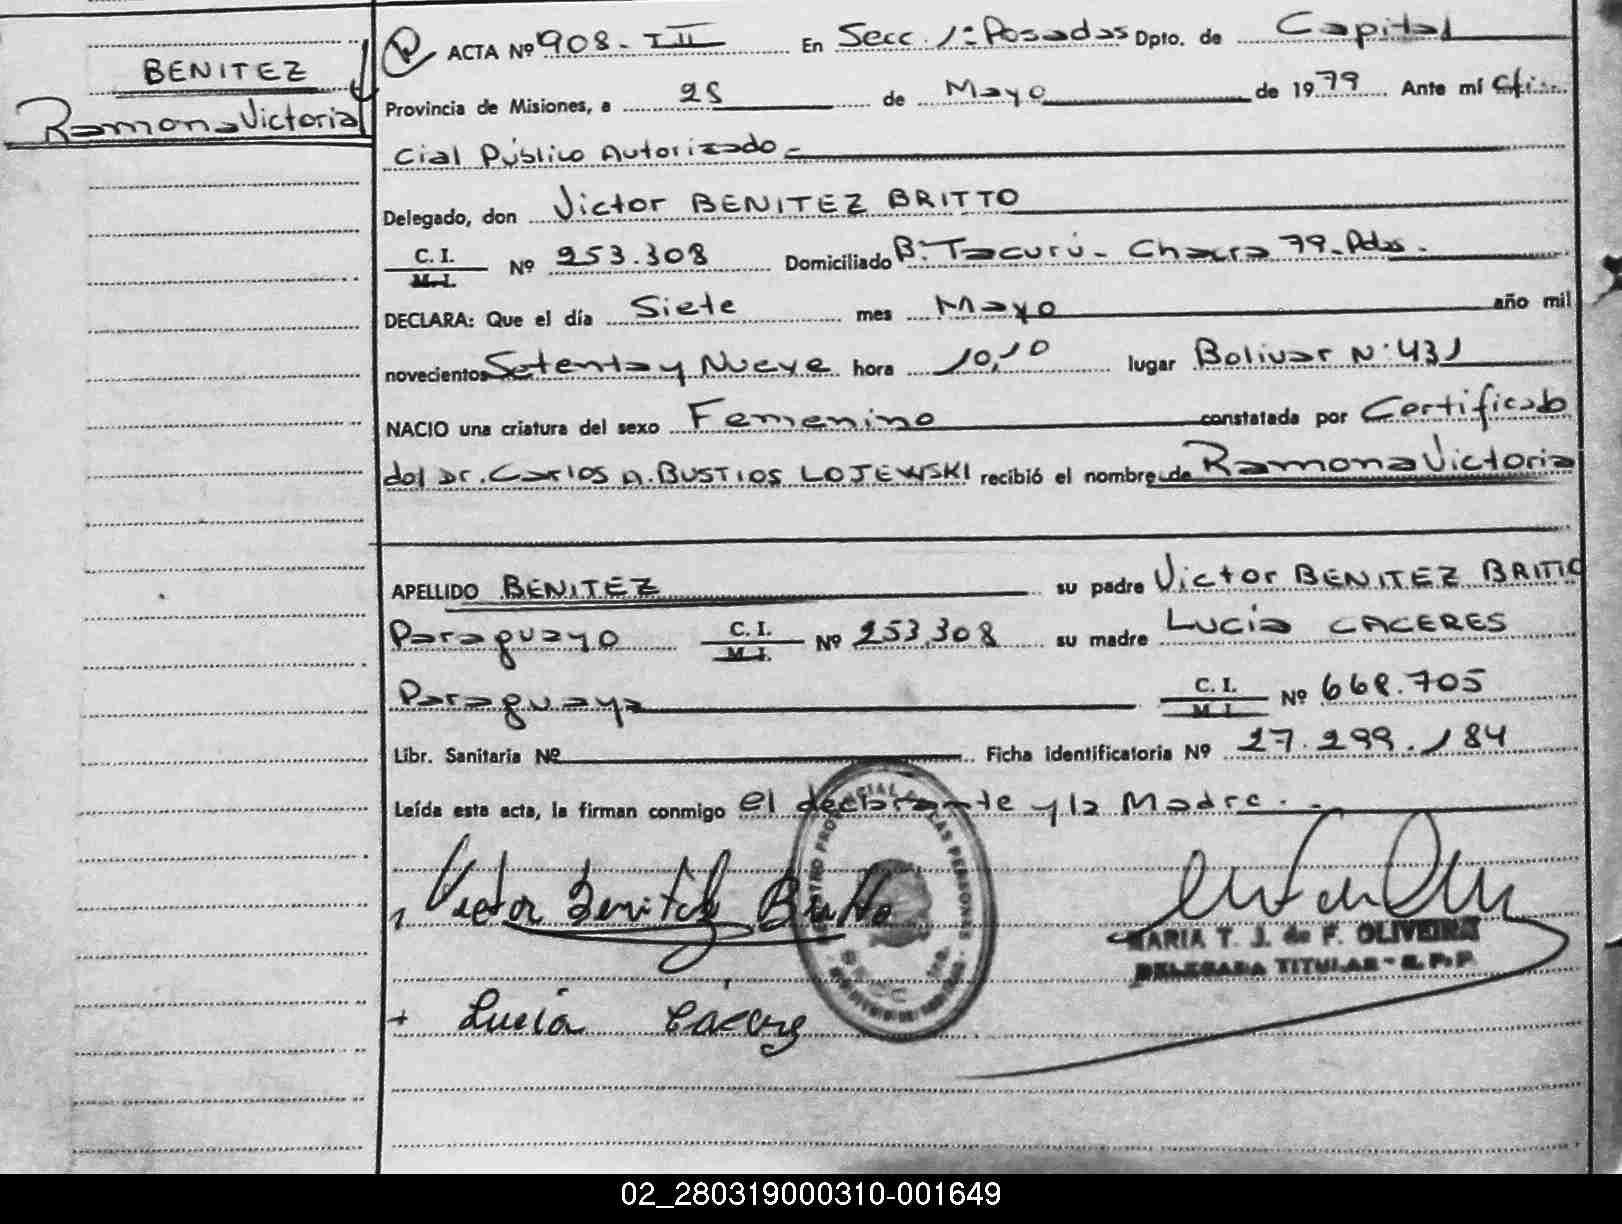 BENITEZ
Ramona Victoria
ACTA Nº 908-III En Secc. 1ª Posadas Dpto. de Capital
Provincia de Misiones, a 28 de Mayo de 1979 Ante mí Ofi-
cial Público Autorizado.-
Delegado, don Victor BENITEZ BRITTO
C. I. / M. I. Nº 253.308 Domiciliado Bº Tacurú- Chacra 79-Pdas.
DECLARA: Que el día Siete mes Mayo año mil
novecientos Setenta y Nueve hora 10,10 lugar Bolivar Nº 431
NACIO una criatura del sexo Femenino constatada por Certificado
del Dr. Carlos A. BUSTIOS LOJEWSKI recibió el nombre de Ramona Victoria
APELLIDO BENITEZ su padre Victor BENITEZ BRITTO
Paraguayo C. I. / M. I. Nº 253.308 su madre Lucía CACERES
Paraguaya C. I. / M. I. Nº 668.705
Libr. Sanitaria Nº Ficha identificatoria Nº 27.299.184
Leída esta acta, la firman conmigo el declarante y la Madre.-
Victor Benitez Britto
MARIA T. J. de F. OLIVEIRA
DELEGADA TITULAR - R. P. P.
Lucía Cáceres
02_280319000310-001649